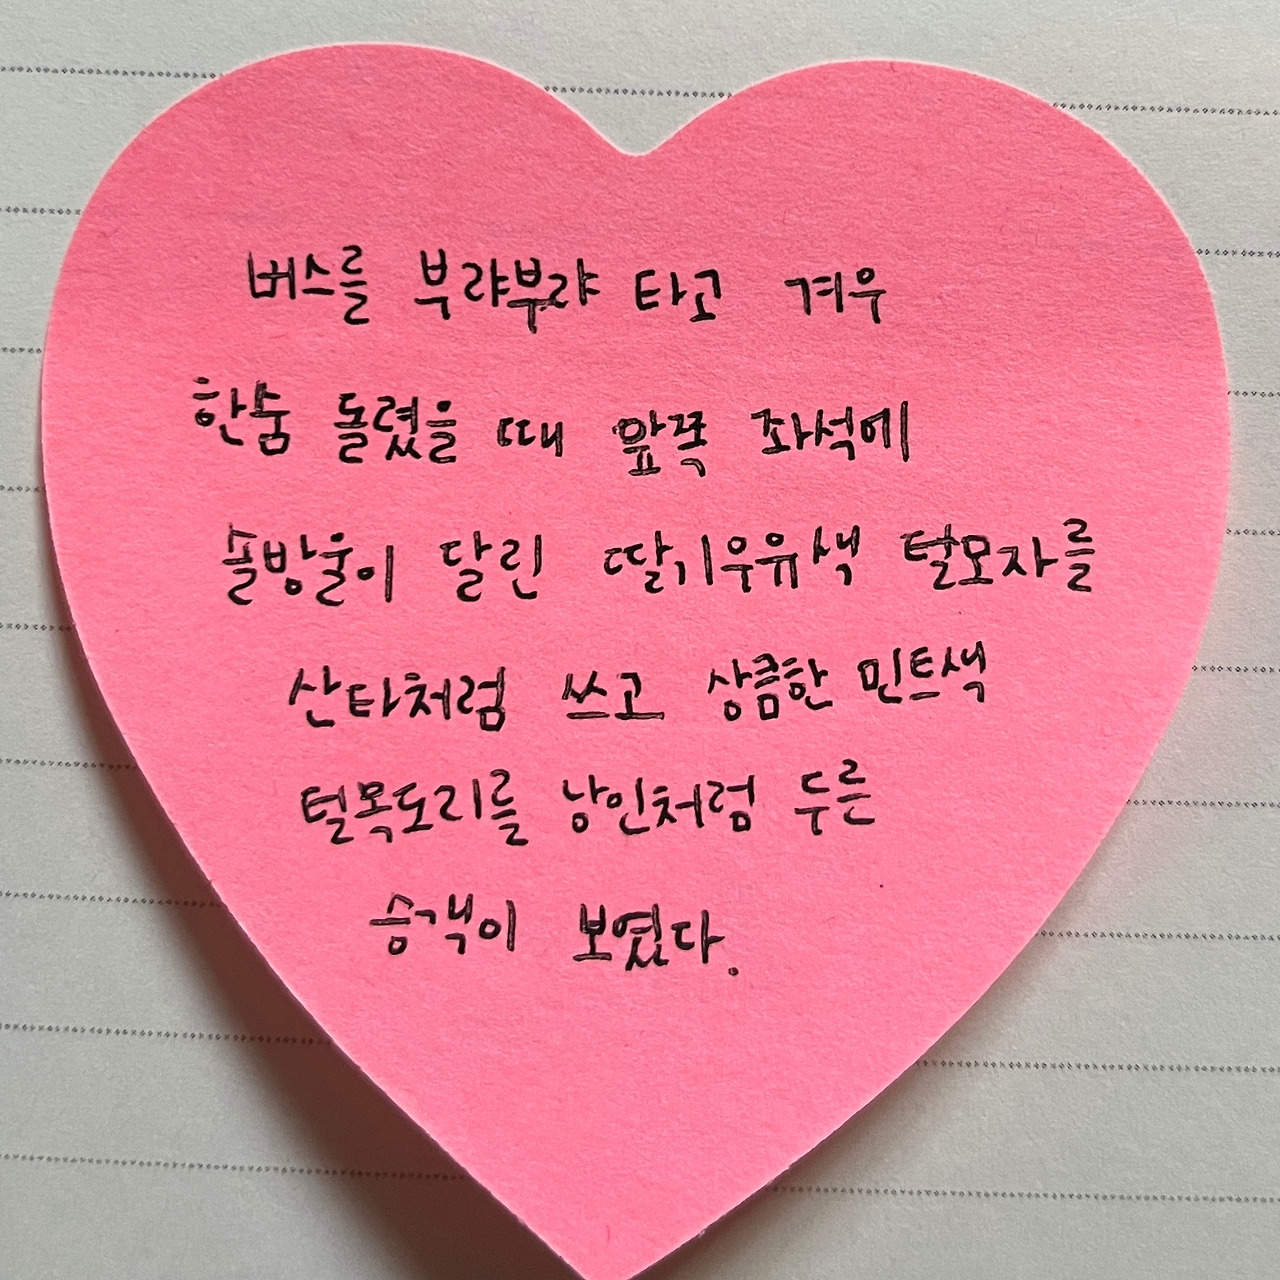 버스를 부랴부랴 타고 겨우
한숨 돌렸을 때 앞쪽 좌석에
솔방울이 달린 딸기우유색 털모자를
산타처럼 쓰고 상큼한 민트색
털목도리를 낭인처럼 두른
승객이 보였다.